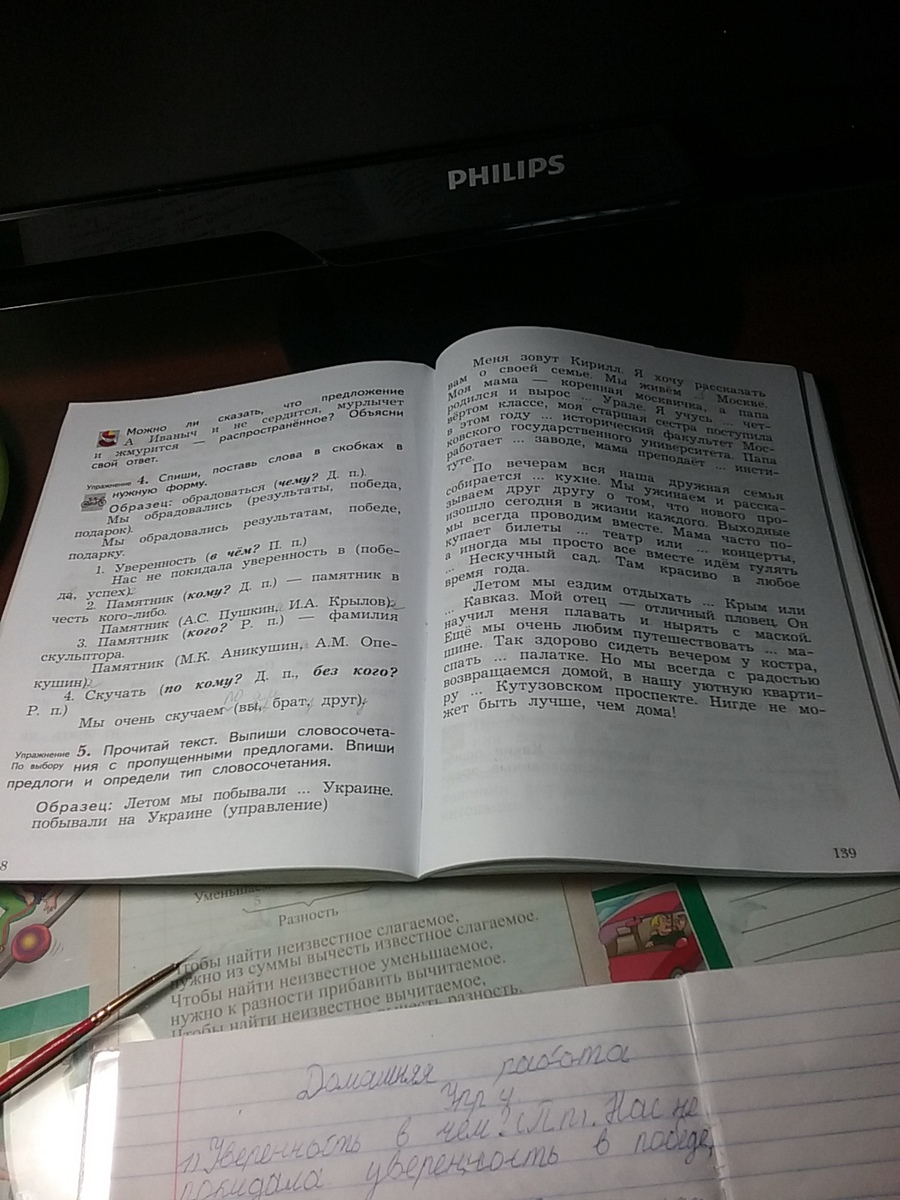 PHILIPS
Можно ли сказать, что предложение
А Иваныч и не сердится, мурлычет
и жмурится — распространённое? Объясни
свой ответ.
Упражнение 4. Спиши, поставь слова в скобках в
нужную форму.
Образец: обрадоваться (чему? Д. п.).
Мы обрадовались (результаты, победа,
подарок).
Мы обрадовались результатам, победе,
подарку.
1. Уверенность (в чём? П. п.)
Нас не покидала уверенность в (побе-
да, успех).
2. Памятник (кому? Д. п.) — памятник в
честь кого-либо.
Памятник (А.С. Пушкин, И.А. Крылов).
3. Памятник (кого? Р. п.) — фамилия
скульптора.
Памятник (М.К. Аникушин, А.М. Опе-
кушин).
4. Скучать (по кому? Д. п., без кого?
Р. п.)
Мы очень скучаем (вы, брат, друг).
Упражнение 5. Прочитай текст. Выпиши словосочета-
По выбору ния с пропущенными предлогами. Впиши
предлоги и определи тип словосочетания.
Образец: Летом мы побывали ... Украине.
побывали на Украине (управление)
8
Меня зовут Кирилл. Я хочу рассказать
вам о своей семье. Мы живём ... Москве.
Моя мама — коренная москвичка, а папа
родился и вырос ... Урале. Я учусь ... чет-
вёртом классе, моя старшая сестра поступила
в этом году ... исторический факультет Мос-
ковского государственного университета. Папа
работает ... заводе, мама преподаёт ... инсти-
туте.
По вечерам вся наша дружная семья
собирается ... кухне. Мы ужинаем и расска-
зываем друг другу о том, что нового про-
изошло сегодня в жизни каждого. Выходные
мы всегда проводим вместе. Мама часто по-
купает билеты ... театр или ... концерты,
а иногда мы просто все вместе идём гулять
... Нескучный сад. Там красиво в любое
время года.
Летом мы ездим отдыхать ... Крым или
... Кавказ. Мой отец — отличный пловец. Он
научил меня плавать и нырять с маской.
Ещё мы очень любим путешествовать ... ма-
шине. Так здорово сидеть вечером у костра,
спать ... палатке. Но мы всегда с радостью
возвращаемся домой, в нашу уютную кварти-
ру ... Кутузовском проспекте. Нигде не мо-
жет быть лучше, чем дома!
139
Разность
Чтобы найти неизвестное слагаемое,
нужно из суммы вычесть известное слагаемое.
Чтобы найти неизвестное уменьшаемое,
нужно к разности прибавить вычитаемое.
Чтобы найти неизвестное вычитаемое,
разность.
Домашняя работа
Упр 4
1) Уверенность в чем? (П.п). Нас не
покидала уверенность в победе,